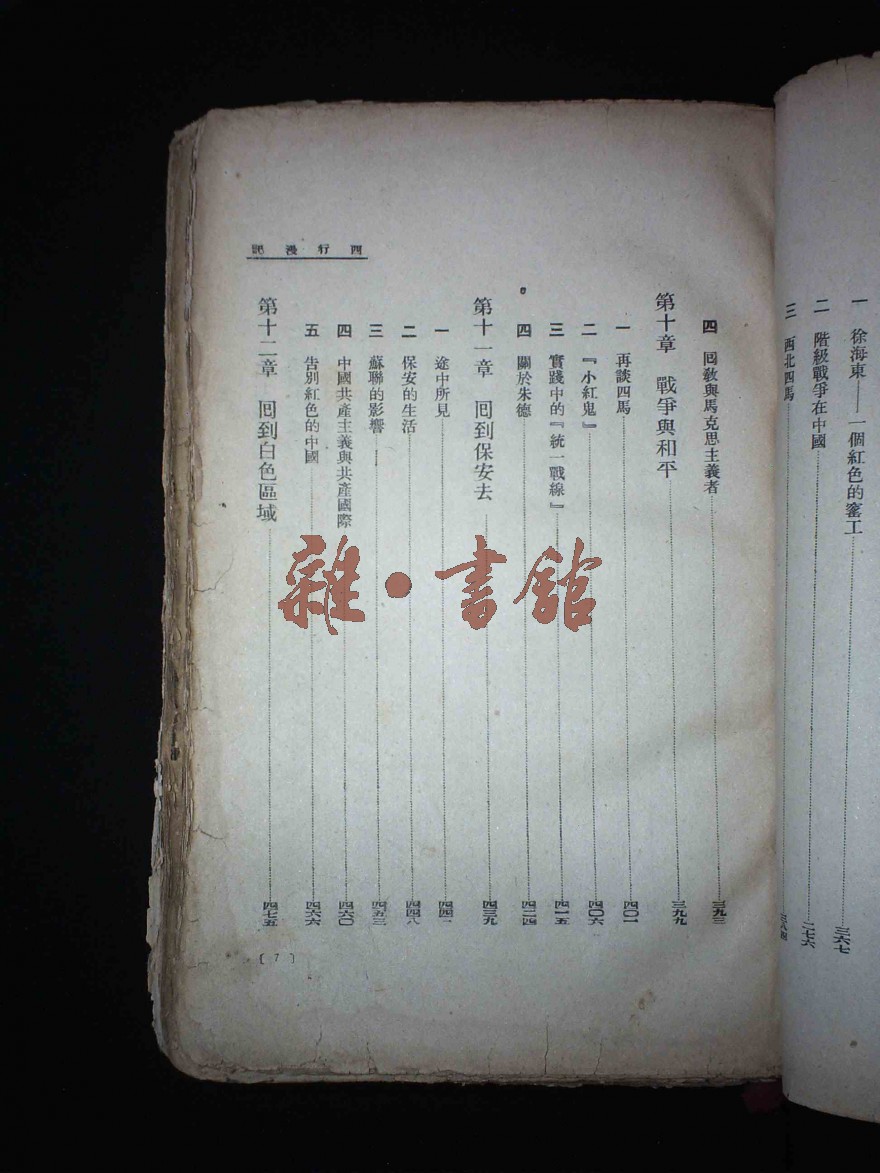 一　徐海東——一個紅色的窰工　三六七
二　階級戰爭在中國　二七六
三　西北四馬
西行漫記
四　回敎與馬克思主義者　三九三
第十章　戰爭與和平　三九九
一　再談四馬　四〇一
二　『小紅鬼』　四〇六
三　實踐中的『統一戰線』　四一五
四　關於朱德　四二四
第十一章　囘到保安去　四三九
一　途中所見　四四一
二　保安的生活　四四八
三　蘇聯的影響　四五三
四　中國共產主義與共產國際　四六〇
五　告別紅色的中國　四六六
第十二章　囘到白色區域　四七五
〔7〕
雜·書舘